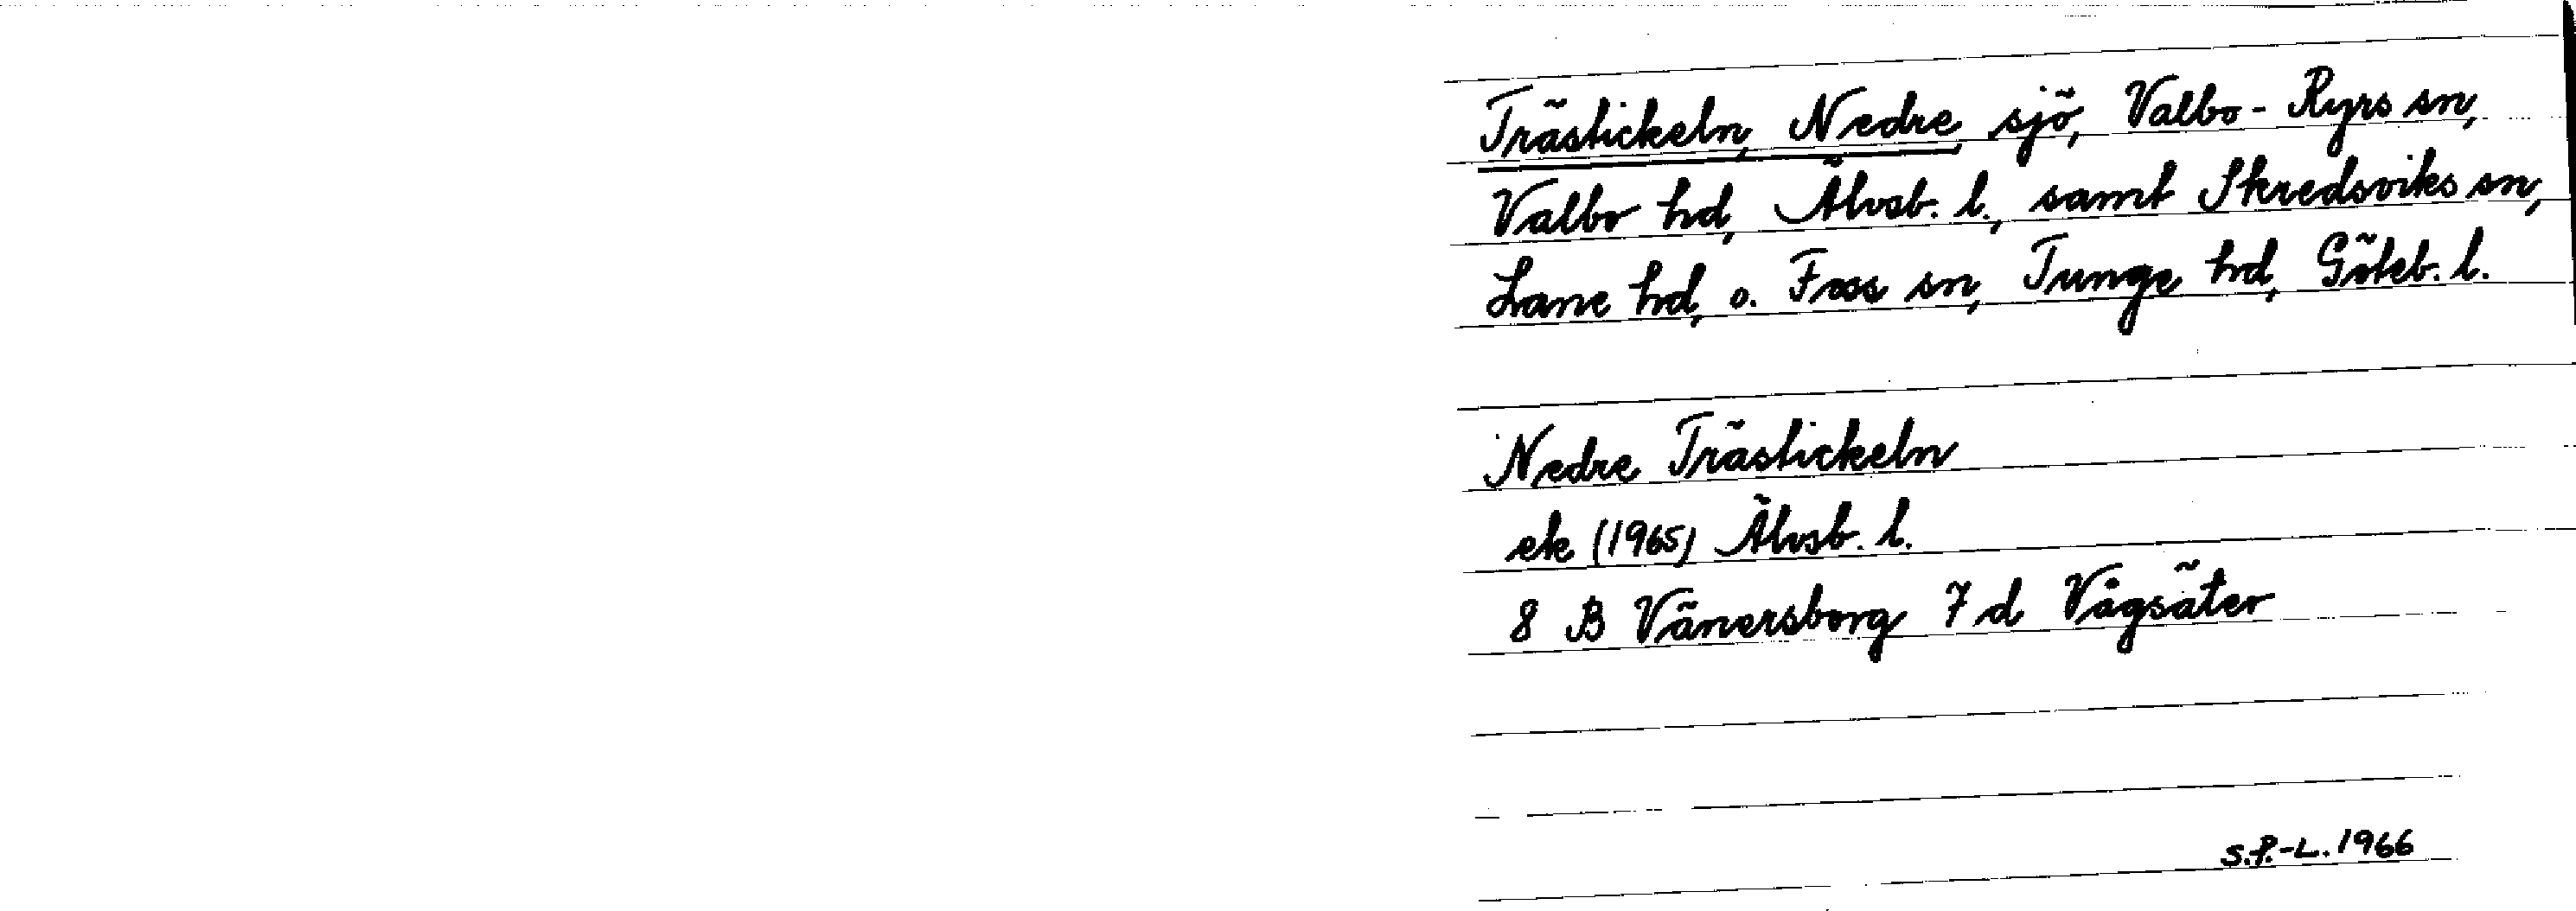 Trästickeln, Nedre, sjö, Valbo-Ryrs sn,
Valbo hd, Älvsb. l., samt Skredsviks sn,
Lane hd, o. Foss sn, Tunge hd, Göteb. l.
Nedre Trästickeln
ek (1965) Älvsb. l.
8 B Vänersborg 7 d Vågsäter
S.P.-L. 1966